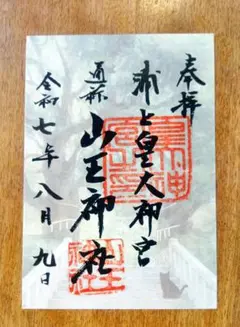 奉拝
浦上皇大神宮
通称
山王神社
令和七年八月九日